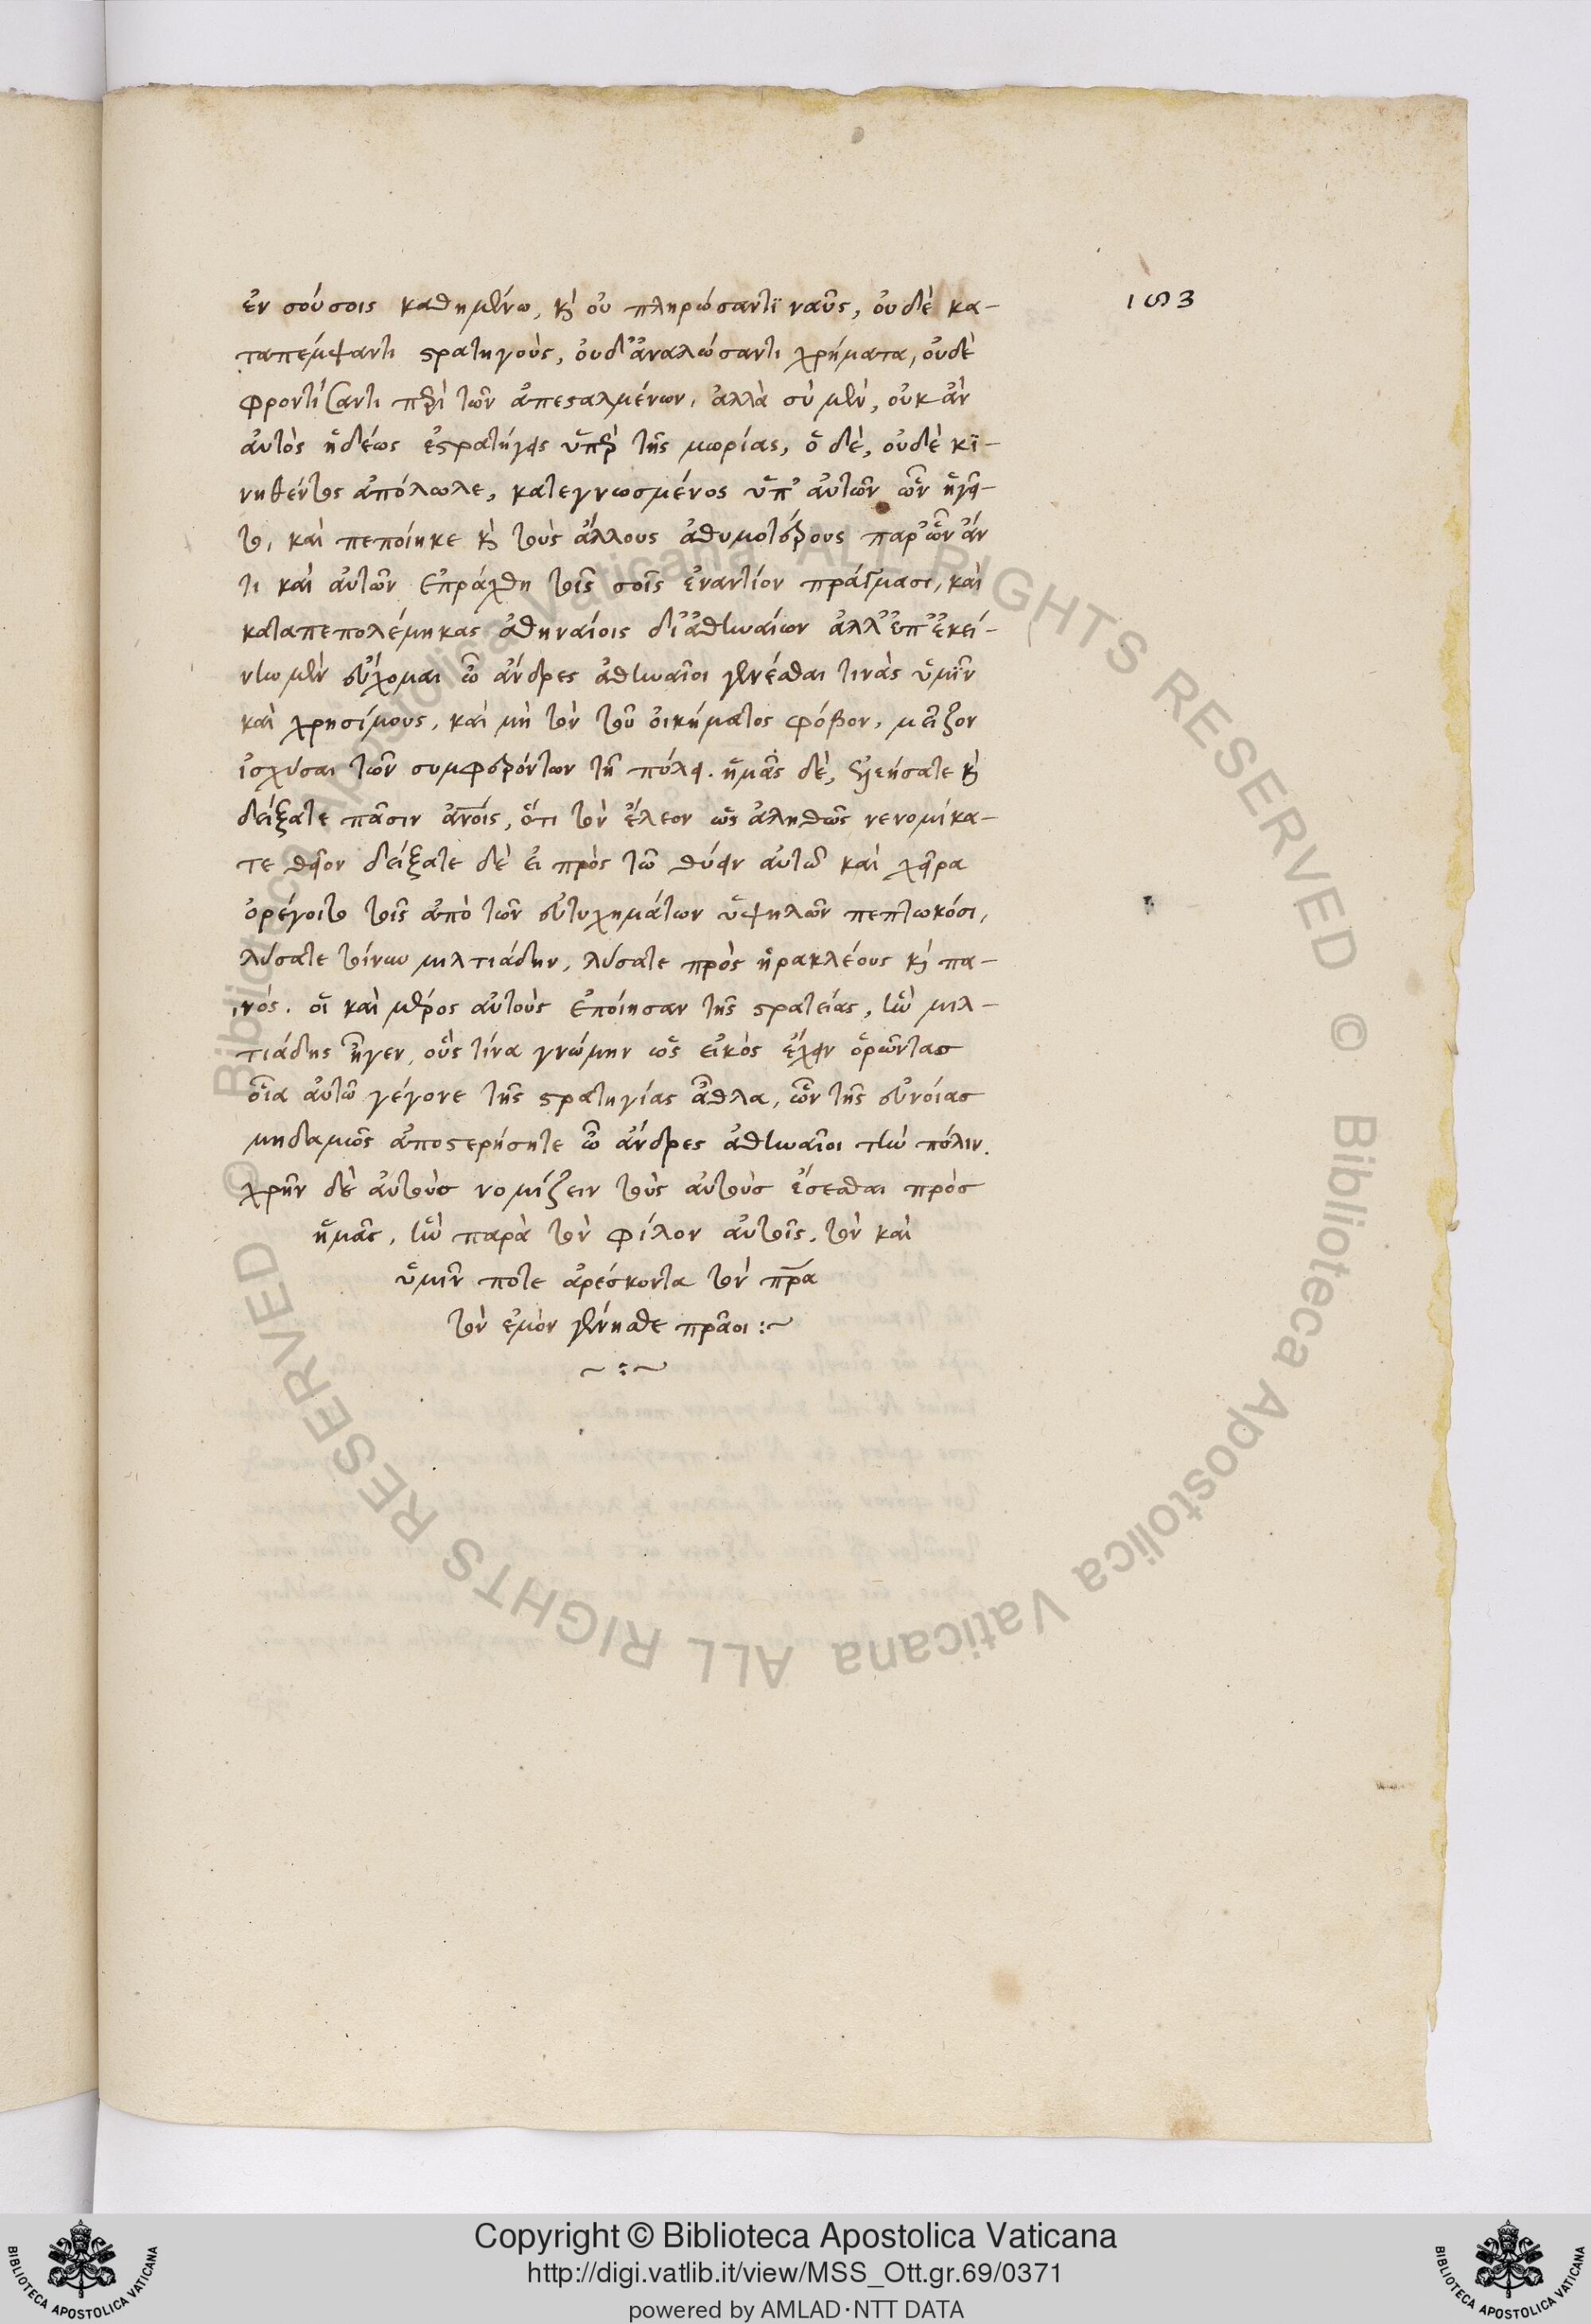 ἐν σούσοις καθημένω, κ̀ οὐ πληρώσαντϊ ναῦς, οὐδὲ κα-
ταπέμψαντι ϛρατηγοὺς, οὐδ' ἀναλώσαντι χρήματα, οὐδὲ
φροντίσαντι περὶ τῶν ἀπεϛαλμένων, ἀλλὰ σὺ μὲν, οὐκ ἂν
αὐτὸς ἡδέως ἐϛρατήγεις ὑπὲρ τῆς μωρίας, ὁ δὲ, οὐδὲ κϊ-
νηθέντος ἀπόλωλε, κατεγνωσμένος ὑπ' αὐτῶν ὧν ἡγεῖ-
το, καὶ πεποίηκε κ̀ τοὺς ἄλλους ἀθυμοτέρους παρ' ὧν ἄν
τι καὶ αὐτῶν ἐπράχθη τοῖς σοῖς ἐναντίον πράγμασι, καὶ
καταπεπολέμηκας ἀθηναίοις δι' ἀθηναίων ἀλλ' ἐπ' ἐκεί-
νην μὲν εὔχομαι ὦ ἄνδρες ἀθηναῖοι γενέσθαι τινὰς ὑμῖν
καὶ χρησίμους, καὶ μὴ τὸν τοῦ οἰκήματος φόβον, μεῖζον
ἰσχύσαι τῶν συμφερόντων τῆ πόλει. ἡμᾶς δὲ, ἐλεήσατε κ̀
δείξατε πᾶσιν ἀνοις, ὅτι τὸν ἔλεον ὡς ἀληθῶς νενομίκα-
τε θεῖον δείξατε δὲ εἰ πρὸς τῶ θύειν αὐτῶ καὶ χεῖρα
ὀρέγοιτο τοῖς ἀπὸ τῶν εὐτυχημάτων ὑψηλῶν πεπτωκόσι,
λύσατε τοίνυν μιλτιάδην, λύσατε πρὸς ἡρακλέους κ̀ πα-
νός. οἳ καὶ μέρος αὐτοὺς ἐποίησαν τῆς ϛρατείας, ἣν μιλ-
τιάδης ἦγεν, οὓς τίνα γνώμην ὡς εἰκὸς ἔχειν ὁρῶντας
οἷα αὐτῶ γέγονε τῆς ϛρατηγίας ἆθλα, ὧν τῆς εὐνοίας
μηδαμῶς ἀποϛερήσητε ὦ ἄνδρες ἀθηναῖοι τὴν πόλιν.
χρῆν δὲ αὐτοὺς νομίζειν τοὺς αὐτοὺς ἔσεσθαι πρὸς
ἡμᾶς, ἢν παρὰ τὸν φίλον αὐτοῖς, τὸν καὶ
ὑμῖν ποτε ἀρέσκοντα τὸν πρα
τὸν ἐμὸν γένησθε πρᾶοι :~
~:~
153
Copyright © Biblioteca Apostolica Vaticana
http://digi.vatlib.it/view/MSS_Ott.gr.69/0371
powered by AMLAD·NTT DATA
BIBLIOTECA APOSTOLICA VATICANA
BIBLIOTECA APOSTOLICA VATICANA
© Biblioteca Apostolica Vaticana ALL RIGHTS RESERVED © Biblioteca Apostolica Vaticana ALL RIGHTS RESERVED